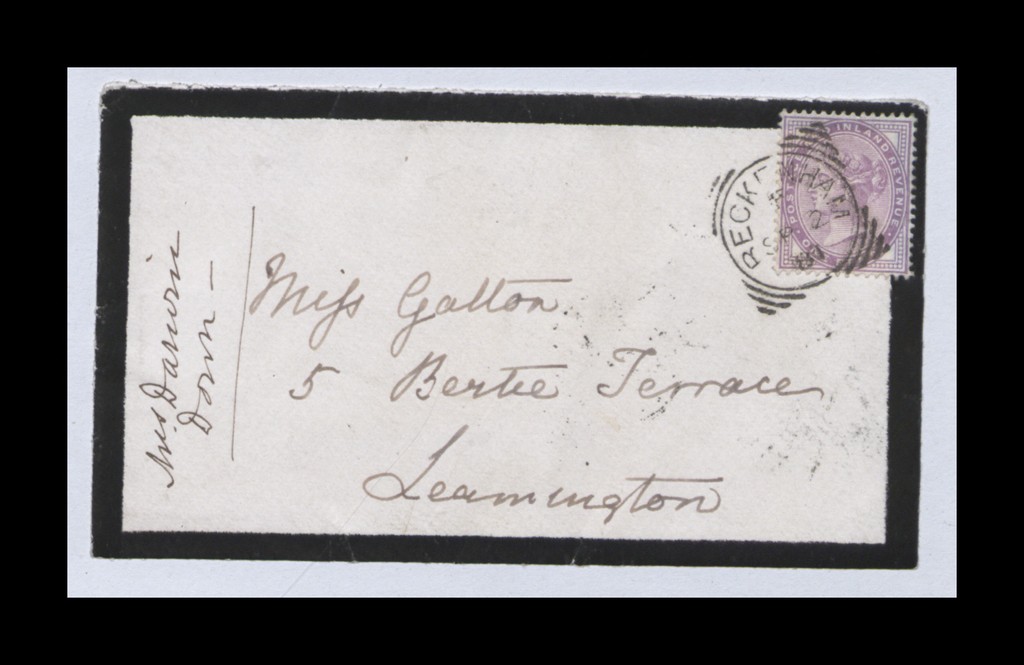 Miss Darwin
Down —
Miss Galton
5 Bertie Terrace
Leamington
BECKENHAM
POSTAGE INLAND REVENUE